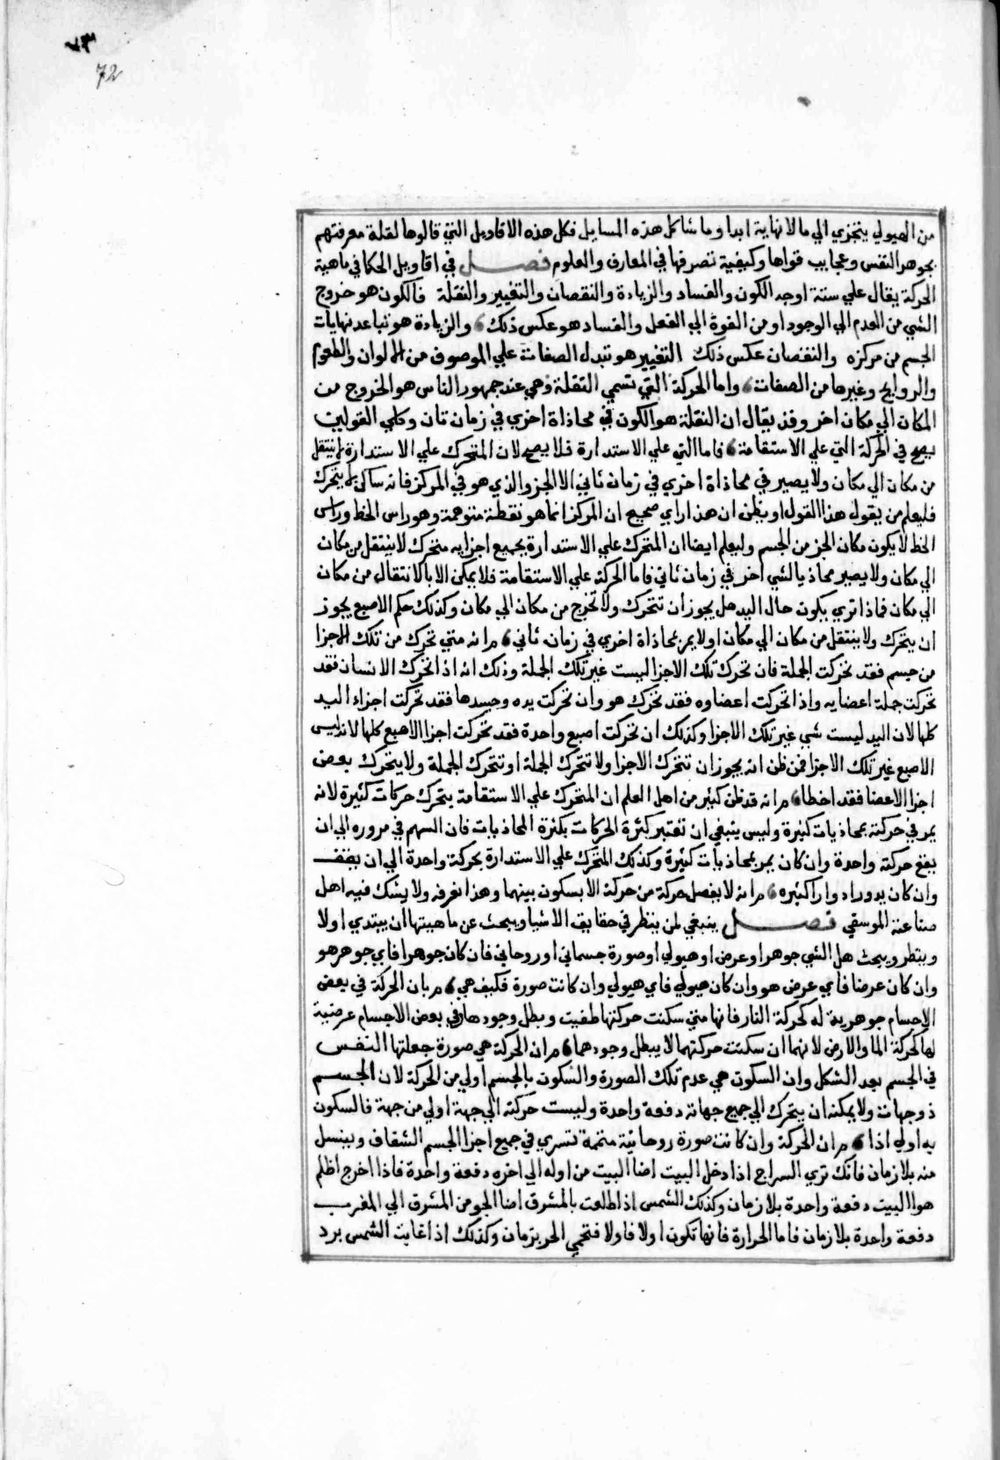 ٧٣
72
من الهيولي يتجزي الي ما لا نهاية ابدا وما شاكل هذه المسايل فكل هذه الاقاويل التي قالوها لقلة معرفتهم
بجوهر النفس وعجايب قواها وكيفية تصرفها في المعارف والعلوم فصل في اقاويل الحكما في ماهية
الحركة يقال علي ستة اوجه الكون والفساد والزيادة والنقصان والتغيير والنقلة فالكون هو خروج
الشي من العدم الي الوجود او من القوة الي الفعل والفساد هو عكس ذلك والزيادة هو تباعد نهايات
الجسم من مركزه والنقصان عكس ذلك التغيير هو تبدل الصفات علي الموصوف من الالوان والطعوم
والروايح وغيرها من الصفات واما الحركة التي تسمي النقلة فهي عند جمهور الناس هو الخروج من
المكان الي مكان اخر وقد يقال ان النقلة هو الكون في محاذاة اخري في زمان ثان وكلي القولين
يصح في الحركة التي علي الاستقامة فاما التي علي الاستدارة فلا يصح لان المتحرك علي الاستدارة لم ينتقل
من مكان الي مكان ولا يصير في محاذاة اخري في زمان ثاني الا الجز والذي هو في المركز فانه ساكن لا يتحرك
فليعلم من يقول هذا القول او يظن ان هذا راي صحيح ان المركز انما هو نقطة متوهمة وهو راس الخط وراس
الخط لا يكون مكان الجز من الجسم وليعلم ايضا ان المتحرك علي الاستدارة بجميع اجزايه متحرك لا ينتقل من مكان
الي مكان ولا يصير محاذيا لشي اخر في زمان ثاني فاما الحركة علي الاستقامة فلا يمكن الا بالانتقال من مكان
الي مكان فماذا تري يكون حال اليد هل يجوز ان تتحرك ولا تخرج من مكان الي مكان وكذلك حكم الاصبع يجوز
ان يتحرك ولا ينتقل من مكان الي مكان اولا يمر بمحاذاة اخري في زمان ثاني مر انه متي تحرك من تلك الاجزا
من جسم فقد تحركت الجملة فان تحرك تلك الاجزا ليست غير تلك الجملة وذلك انه اذا تحرك الانسان فقد
تحركت جملة اعضايه واذا تحركت اعضاوه فقد تحرك هو وان تحركت يده وحيدها فقد تحركت اجزاء اليد
كلها لان اليد ليست شي غير تلك الاجزا وكذلك ان تحركت اصبع واحدة فقد تحركت اجزا الاصبع كلها لانه ليس
الاصبع غير تلك الاجزا فمن ظن انه يجوز ان تتحرك الاجزا ولا تتحرك الجملة او تتحرك الجملة ولا يتحرك بعض
اجزا الاعضا فقد اخطا مر انه قد ظن كثير من اهل العلم ان المتحرك علي الاستقامة يتحرك حركات كثيرة لانه
يمر في حركته بمحاذيات كثيرة وليس ينبغي ان تعتبر كثرة الحركات بكثرة المحاذيات فان السهم في مروره الي ان
يقع حركة واحدة وان كان يمر بمحاذيات كثيرة وكذلك المتحرك علي الاستدارة بحركة واحدة الي ان يقف
وان كان يدور ادوارا كثيره مر انه لا يفصل حركة من حركة الا بسكون بينهما وهذا نعرفه ولا يشك فيه اهل
صناعة الموسقي فصل ينبغي لمن ينظر في حقايق الاشيا ويبحث عن ماهيتها ان يبتدي اولا
وينظر ويبحث هل الشي جوهر او عرض او هيولي او صورة جسماني او روحاني فان كان جوهرا فاي جوهر هو
وان كان عرضا فاي عرض هو وان كان هيولي فاي هيولي وان كانت صورة فكيف هي مر بان الحركة في بعض
الاجسام جوهرية له كحركة النار فانها متي سكنت حركتها طفيت وبطل وجودها وفي بعض الاجسام عرضية
لها كحركة الما والارض لانهما ان سكنت حركتهما لا يبطل وجودهما مر ان الحركة هي صورة جعلتها النفس
في الجسم بعد الشكل وان السكون هي عدم تلك الصورة والسكون بالجسم اولي من الحركة لان الجسم
ذو جهات ولا يمكنه ان يتحرك الي جميع جهاته دفعة واحدة وليست حركته الي جهة اولي من جهة فالسكون
به اولي اذا مر ان الحركة وان كانت صورة روحانية متممة تسري في جميع اجزا الجسم الشفاف وينسل
منه بلا زمان فانك تري السراج اذا دخل البيت اضا البيت من اوله الي اخره دفعة واحدة فاذا اخرج اظلم
هوا البيت دفعة واحدة بلا زمان وكذلك الشمس اذا طلعت بالمشرق اضا الجو من المشرق الي المغرب
دفعة واحدة بلا زمان فاما الحرارة فانها تكون اولا فاولا فتحمي الجو بزمان وكذلك اذا غابت الشمس برد